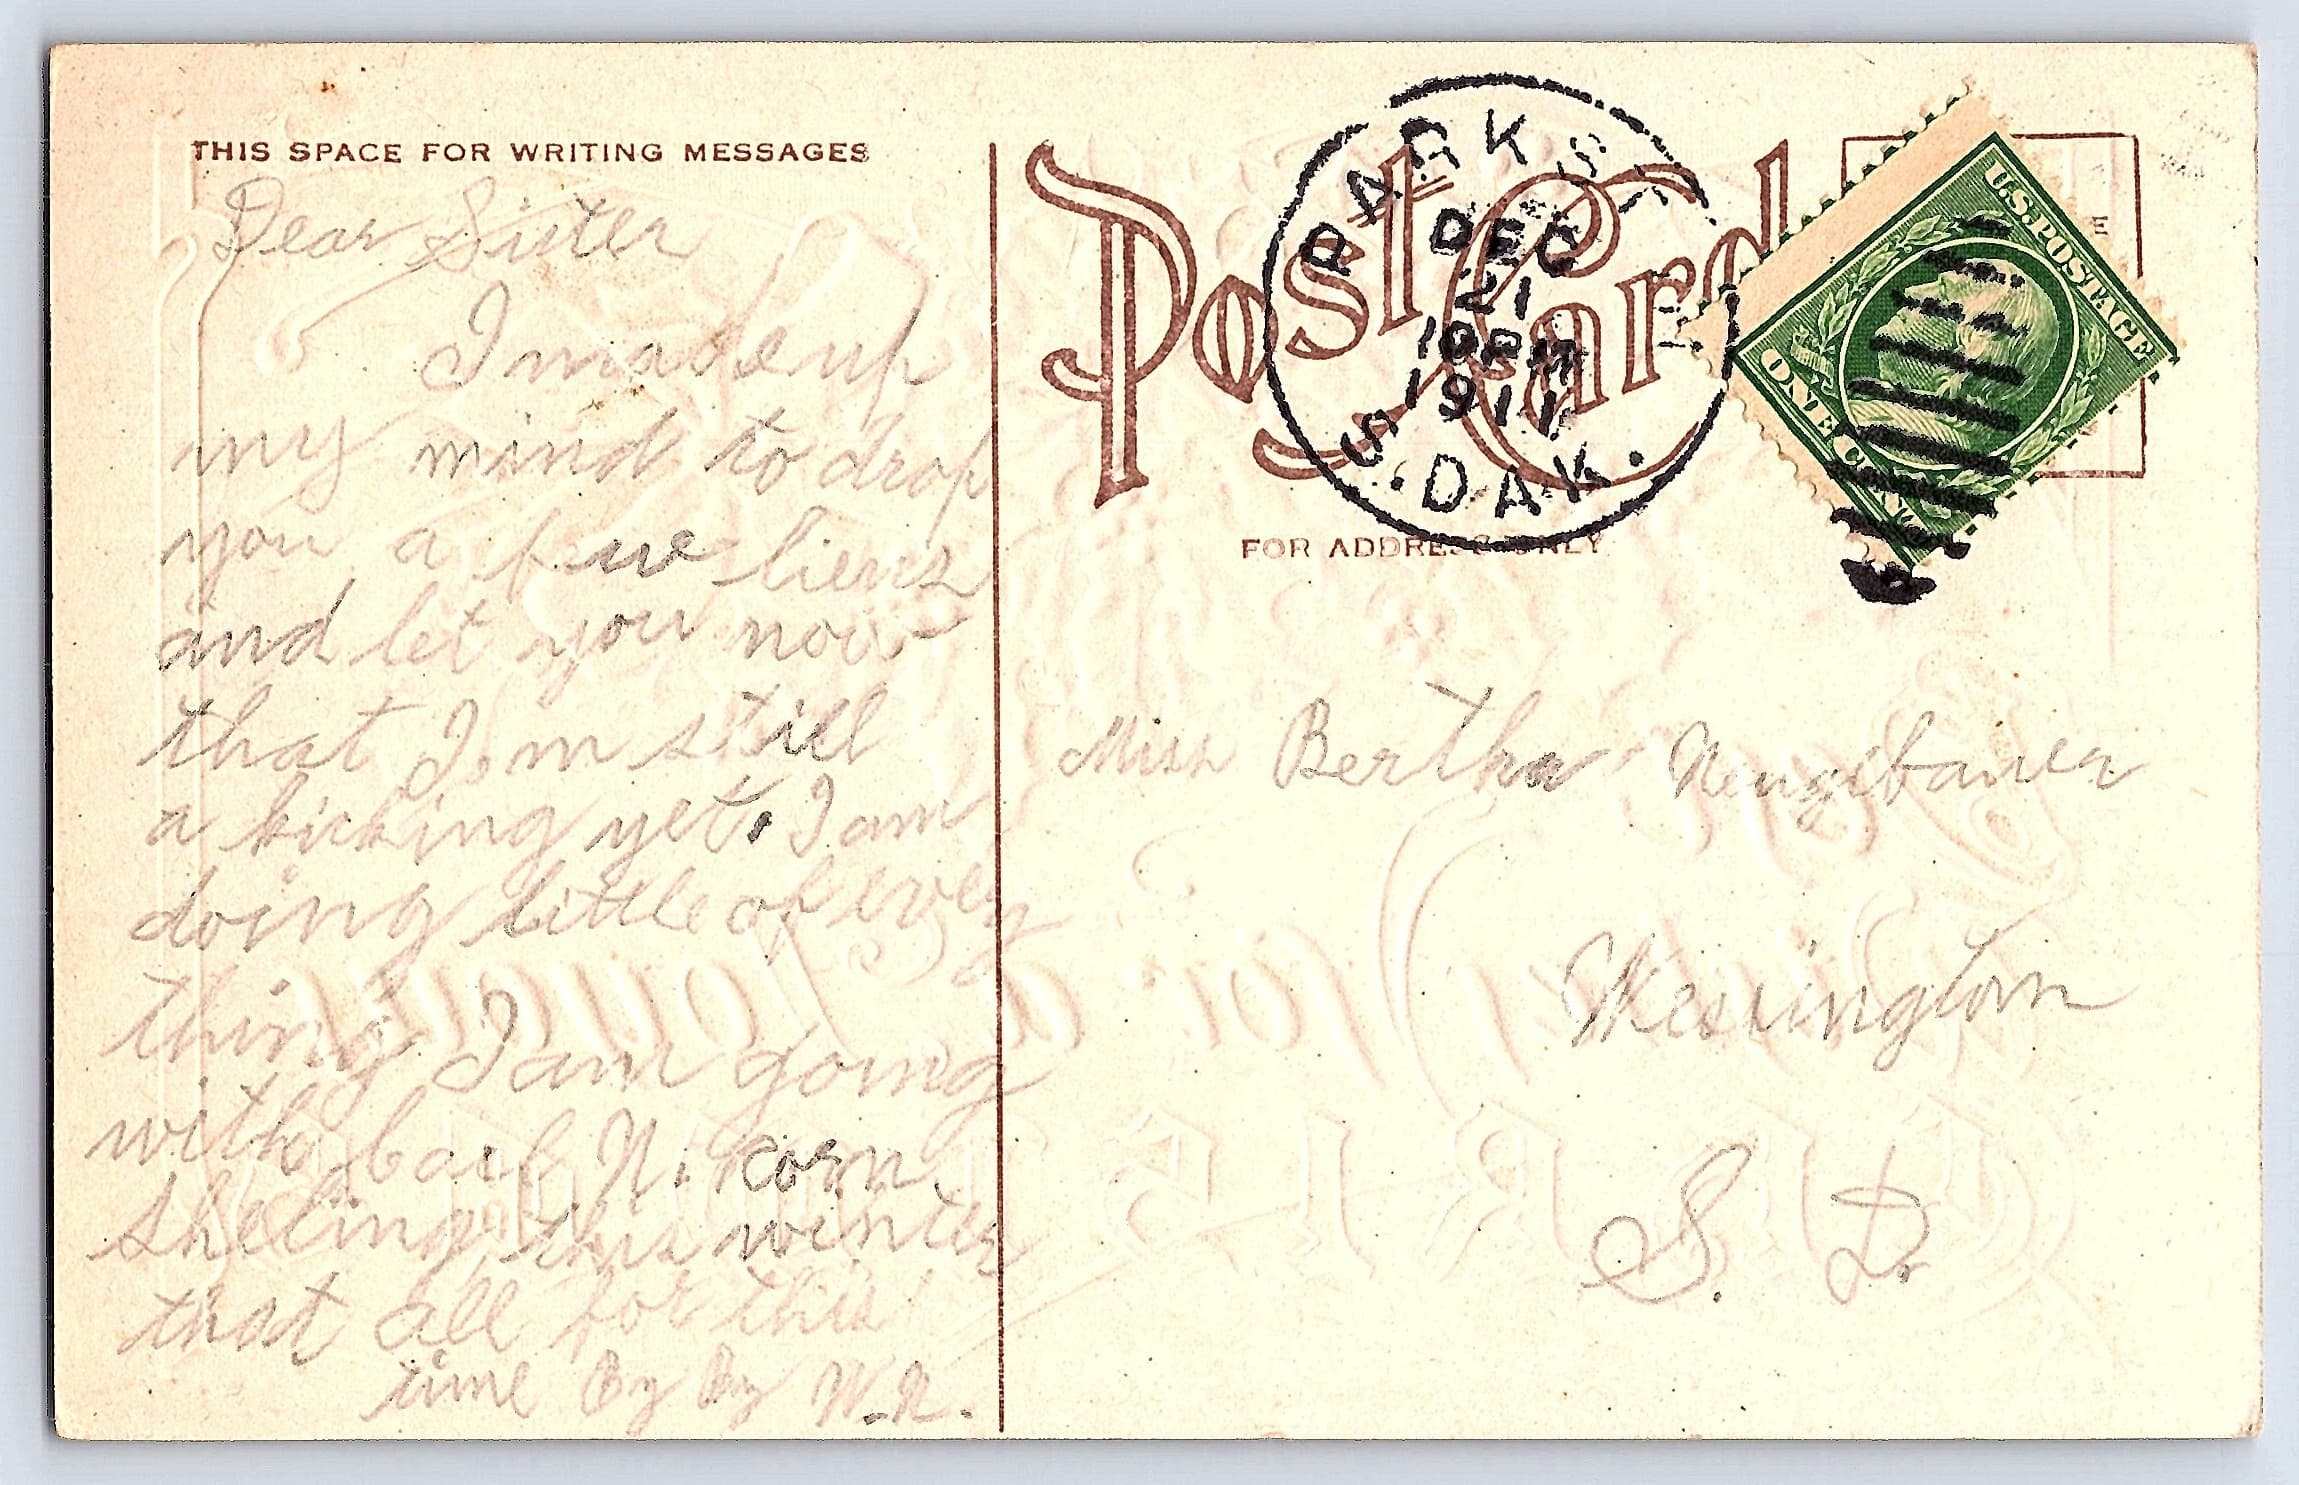 THIS SPACE FOR WRITING MESSAGES
Dear Sister
I made up
my mind to drop
you a few liens
and let you now
that I. m still
a kicking yet. I am
doing little of every
thing I am going
with N. Korn
sheling this winter
that all for this
time By By W. N.
Post Card
PARKST
DEC
21
10 PM
1911
S. DAK.
U.S. POSTAGE
ONE CENT
FOR ADDRESS ONLY
Miss Bertha Neugebauer
Wessington
S. D.